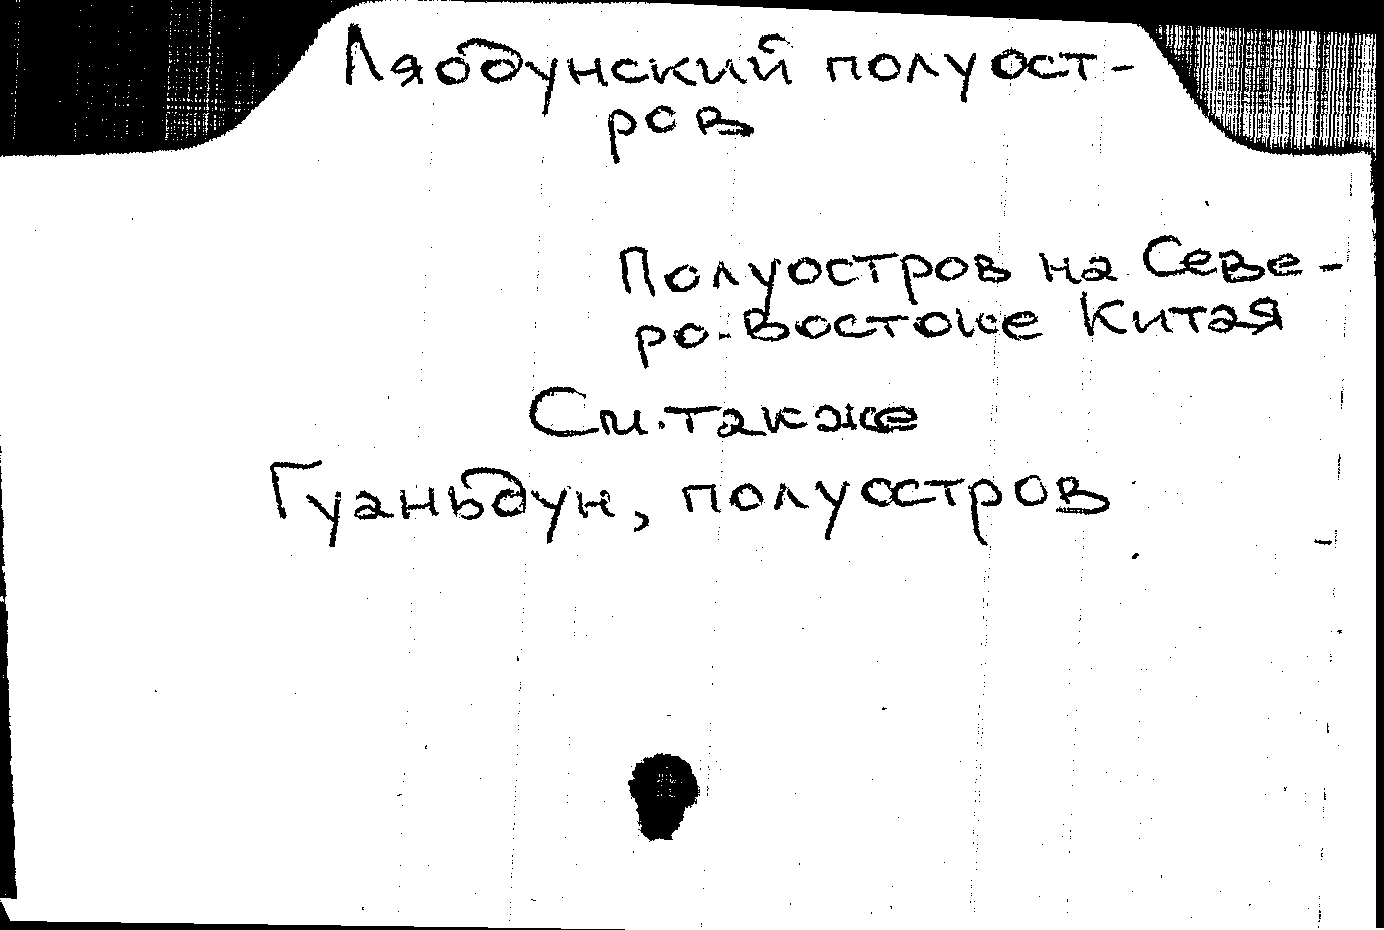 Ляодунский полуост-
ров
Полуостров на Севе-
ро-Востоке Китая
См. также
Гуаньдун, полуостров